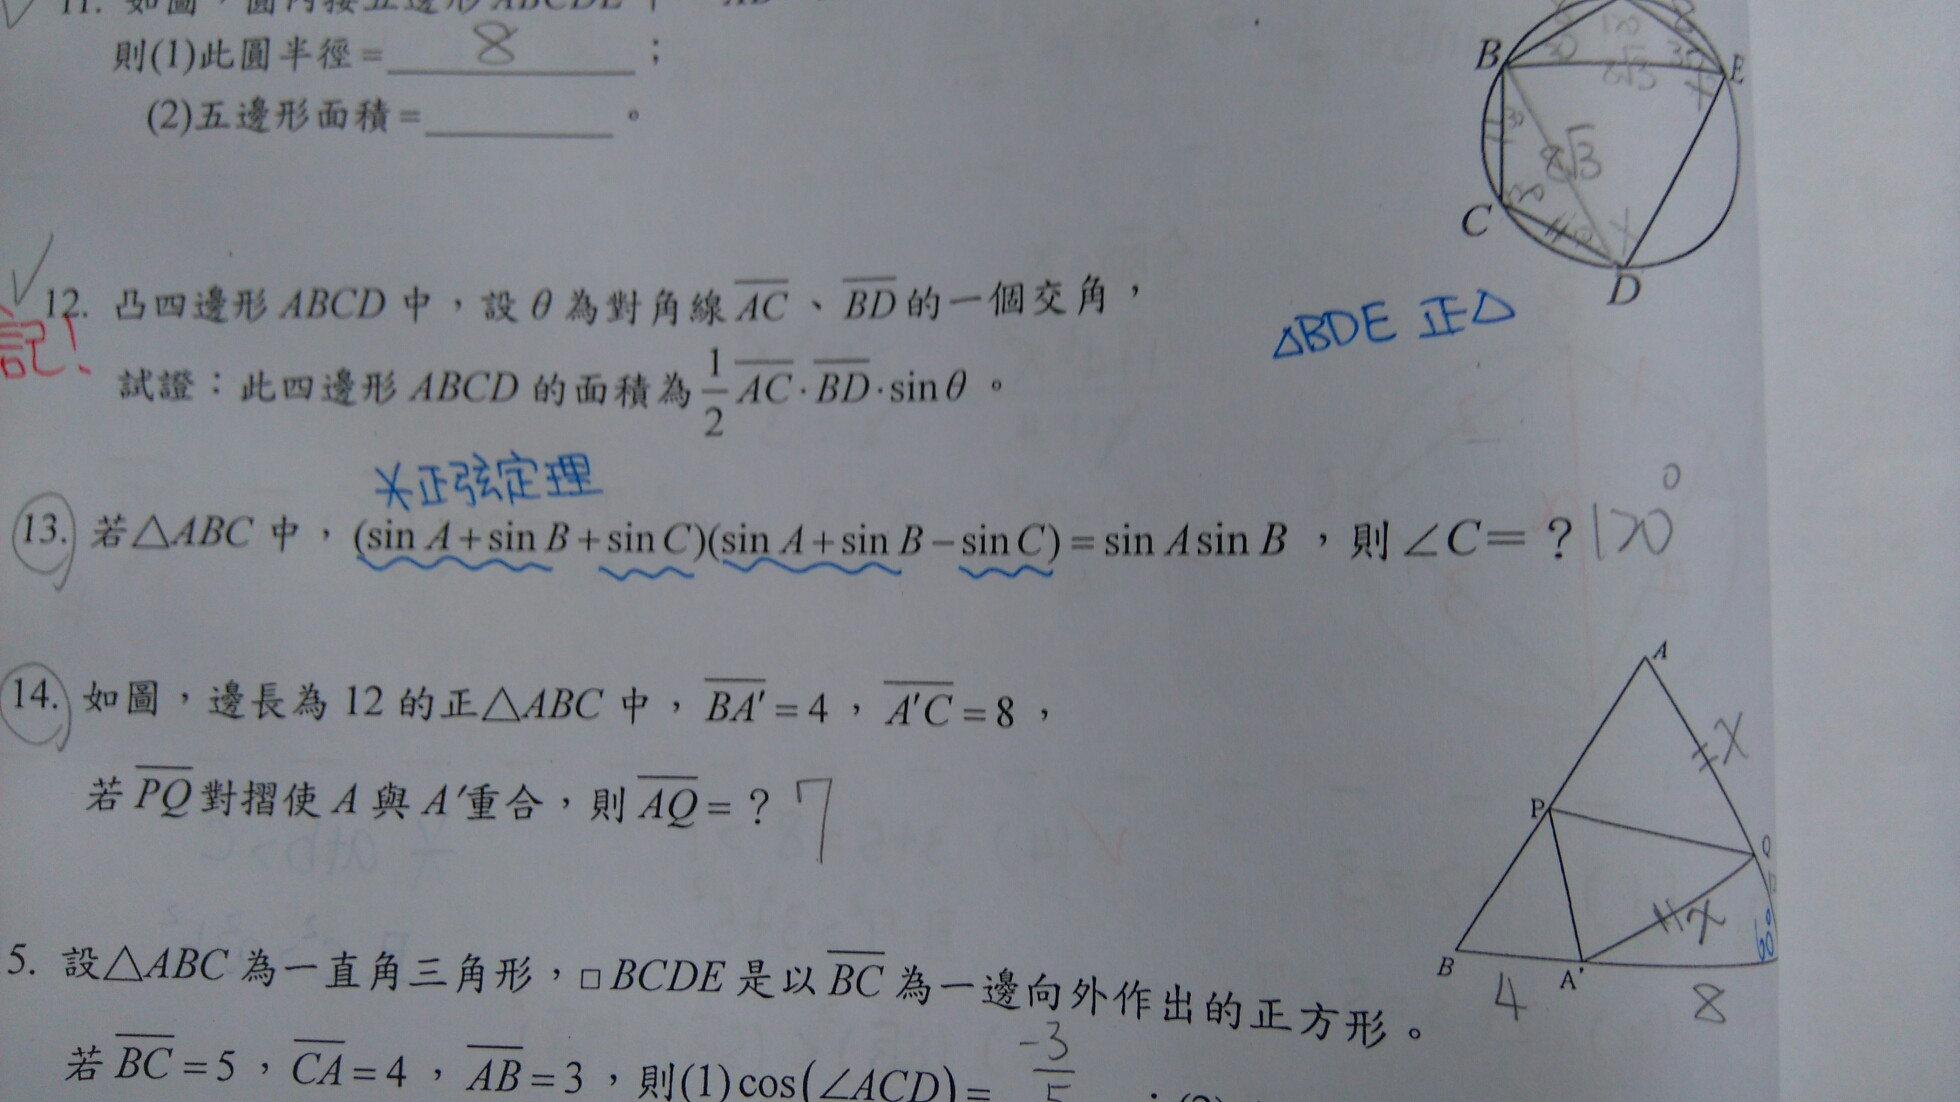 11. 如圖，圓內接五邊形 ABCDE 中
則(1)此圓半徑=8；
(2)五邊形面積=______。
B
E
8√3
8√3
C
D
△BDE 正△
12. 凸四邊形 ABCD 中，設 θ 為對角線 AC、BD 的一個交角，
記!
試證：此四邊形 ABCD 的面積為 1/2 AC·BD·sin θ。
*正弦定理
13. 若△ABC 中，(sin A+sin B+sin C)(sin A+sin B−sin C)=sin A sin B，則∠C=？120°
14. 如圖，邊長為 12 的正△ABC 中，BA′=4，A′C=8，
若 PQ 對摺使 A 與 A′重合，則 AQ=？7
A
x
P
Q
x
60°
B
A'
4
8
5. 設△ABC 為一直角三角形，□BCDE 是以 BC 為一邊向外作出的正方形。
若 BC=5，CA=4，AB=3，則(1)cos(∠ACD)= -3/5